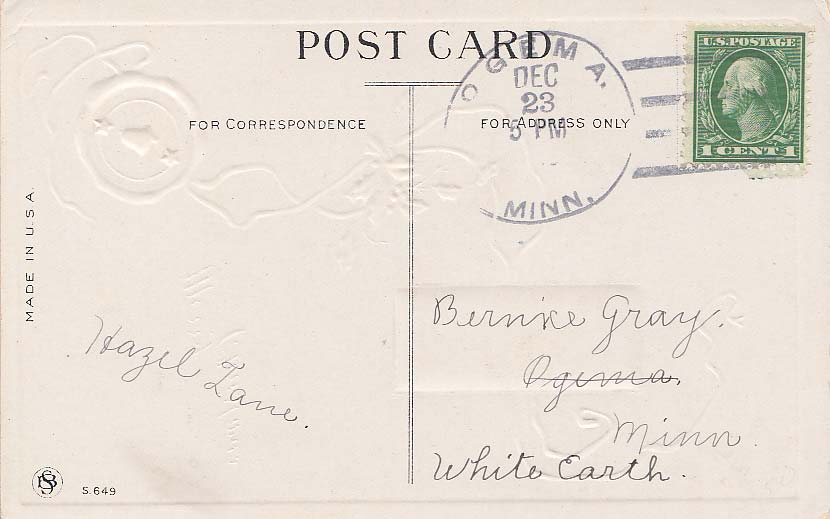 POST CARD
OGEMA.
DEC
23
5 PM
MINN.
U.S. POSTAGE
1 CENT 1
FOR CORRESPONDENCE
FOR ADDRESS ONLY
MADE IN U.S.A.
Hazel Lane.
Bernice Gray.
Ogema.
Minn.
White Earth.
S. 649